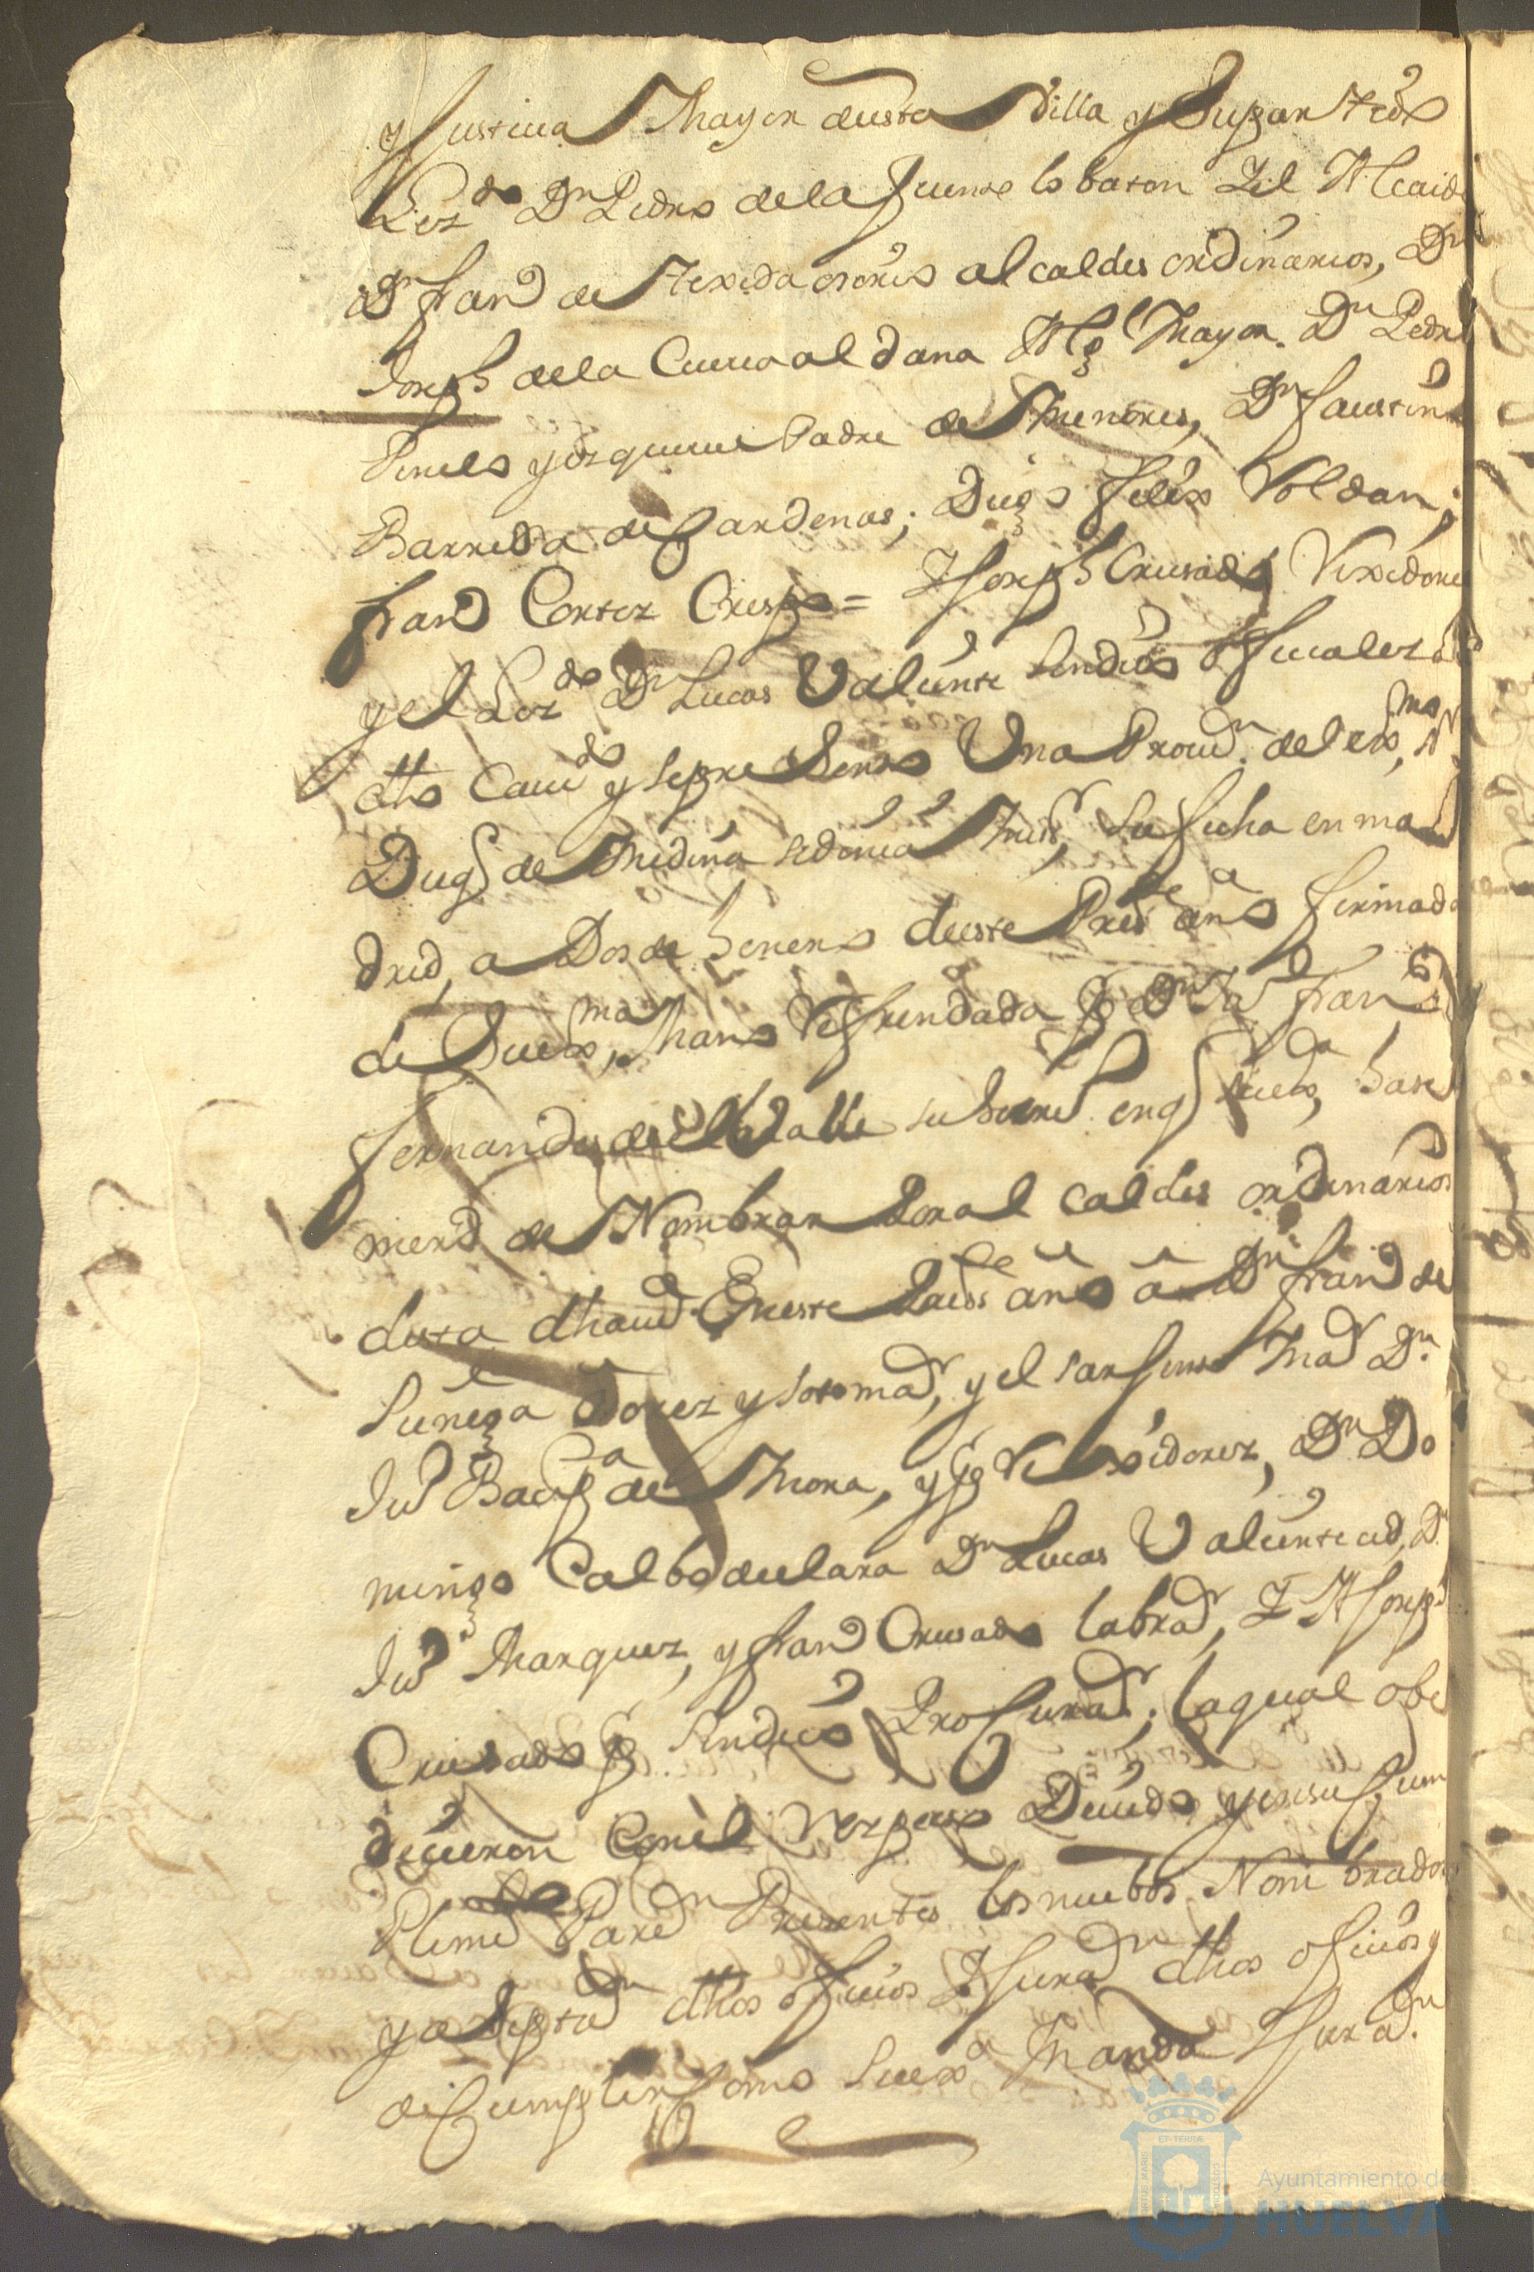 y Justicia Mayor desta Villa y Lugar thedo
Lcz.do Dn Pedro de la fuente lobaton Alcaid
Dn Franco de Texeda osorio alcaldes ordinarios, Dn
Joseph de la Cueua aldana Algl Mayor. Dn Pedro
Pinelo y Padre de Menores, Dn faustino
Barreda de Cardenas; Diego felix Roldan;
franco Cortez Crespo = Joseph Crusado Rexidores
y el Lcz.do Dn Lucas Valiente Sindico
dho Cauido y se pre Una Prouin. del exmo Sr
Duq de Medina sidonia mi Sr, su fecha en ma
drid, a Dos de henero deeste Preste año firmada
de Suexma, Mano Refrendada Por Dn Jn fran
fernandes del Valle su Secreto en q Suexa, hase
merd de Nombrar Por alcaldes ordinarios
desta dha uia Eneste Preste año a Dn franco de
Suñega y sotomar, y el sarxento Mar Dn
Ju Bapta de Mora, y Por Rexidorez, Dn Do
mingo Calbo de Lara Dn Lucas Valiente cid, Dn
Ju Marquez, y franco Crusado labrar, Y A Joseph
Crusado Por Sindico Procurar; la qual obe
decieron Con el Respecto Deuido y en su cum
plimo Paren Presentes los nuebos Nombrados
y aseptan dhos ofiuios Y Juran dhos ofiuios y
de Cumplir Como Suexa Manda Juran.
Ayuntamiento de
HUELVA